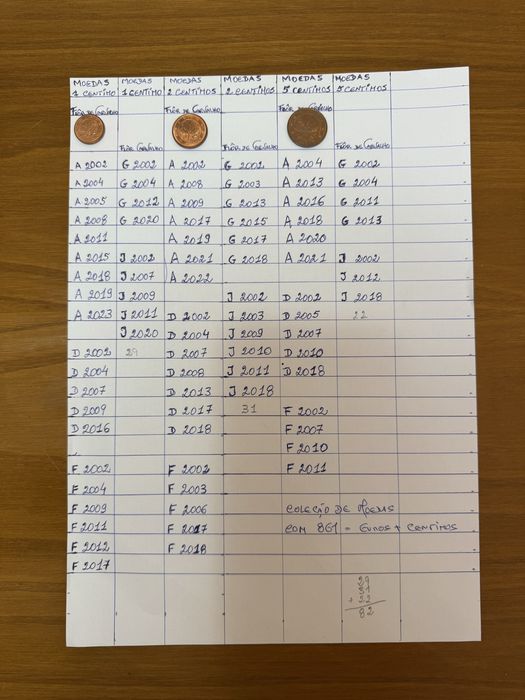 MOEDAS MOEDAS MOEDAS MOEDAS MOEDAS MOEDAS
1 CENTIMO 1 CENTIMO 2 CENTIMOS 2 CENTIMOS 5 CENTIMOS 5 CENTIMOS
FLÔR DE CARVALHO FLÔR DE CARVALHO FLÔR DE CARVALHO
FLÔR CARVALHO FLÔR DE CARVALHO FLÔR DE CARVALHO
A 2002 G 2002 A 2002 G 2002 A 2004 G 2002
A 2004 G 2004 A 2008 G 2003 A 2013 G 2004
A 2005 G 2012 A 2009 G 2013 A 2016 G 2011
A 2008 G 2020 A 2017 G 2015 A 2018 G 2013
A 2011 A 2019 G 2017 A 2020
A 2015 J 2002 A 2021 G 2018 A 2021 J 2002
A 2018 J 2007 A 2022 J 2012
A 2019 J 2009 J 2002 D 2002 J 2018
A 2023 J 2011 D 2002 J 2003 D 2005 22
J 2020 D 2004 J 2009 D 2007
D 2002 29 D 2007 J 2010 D 2010
D 2004 D 2008 J 2011 D 2018
D 2007 D 2013 J 2018
D 2009 D 2017 31 F 2002
D 2016 D 2018 F 2007
F 2010
F 2002 F 2002 F 2011
F 2004 F 2003
F 2009 F 2006 COLEÇÃO DE MOEDAS
F 2011 F 2017 COM 861 = EUROS + CENTIMOS
F 2012 F 2018
F 2017
29
31
+ 22
82